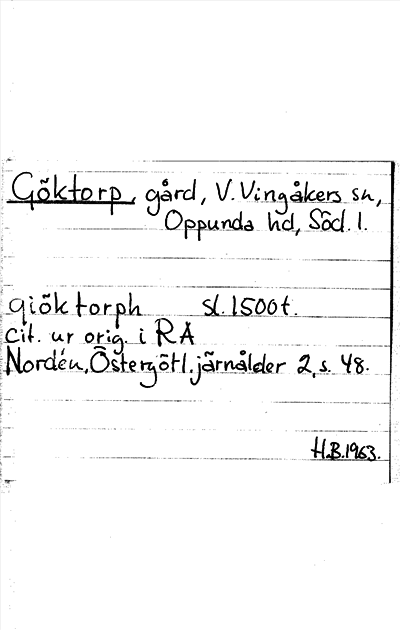 Göktorp, gård, V. Vingåkers sn,
Oppunda hd, Söd. l.
giöktorph sl. 1500t.
cit. ur orig. i RA
Nordén, Östergötl. järnålder 2, s. 48.
H.B. 1963.